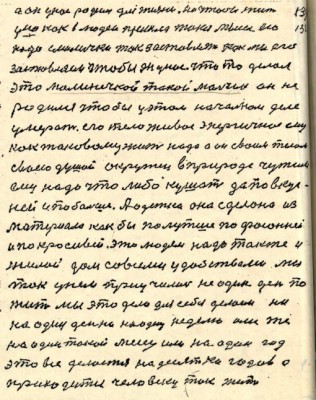 а он уже родился для жизни. Но чтобы жить 13
ума как в людей пришла такая мысль его
надо смолички так заставить как мы его
заставляем чтобы он уже что то делал
это маленичкой такой малыш он не
родился чтобы у этом началном деле
умерать. его тело живое энергичное ему
как таковому жить надо а он своим телом
своею душой окружен в природе чужим
ему надо что либо кушать да по вкус-
ней и побольше. А одежда она сделона из
материала как бы получше по фасонней
и по красивей. Это людям надо также и
жилой дом совсеми удобствами. мы
так умем приучились не один ден по
жить мы это дело для себя делаем ни
на один ден на одну неделю или же
на один такой месец или на один год
это все делается на десятка годов а
приходится человеку так жить